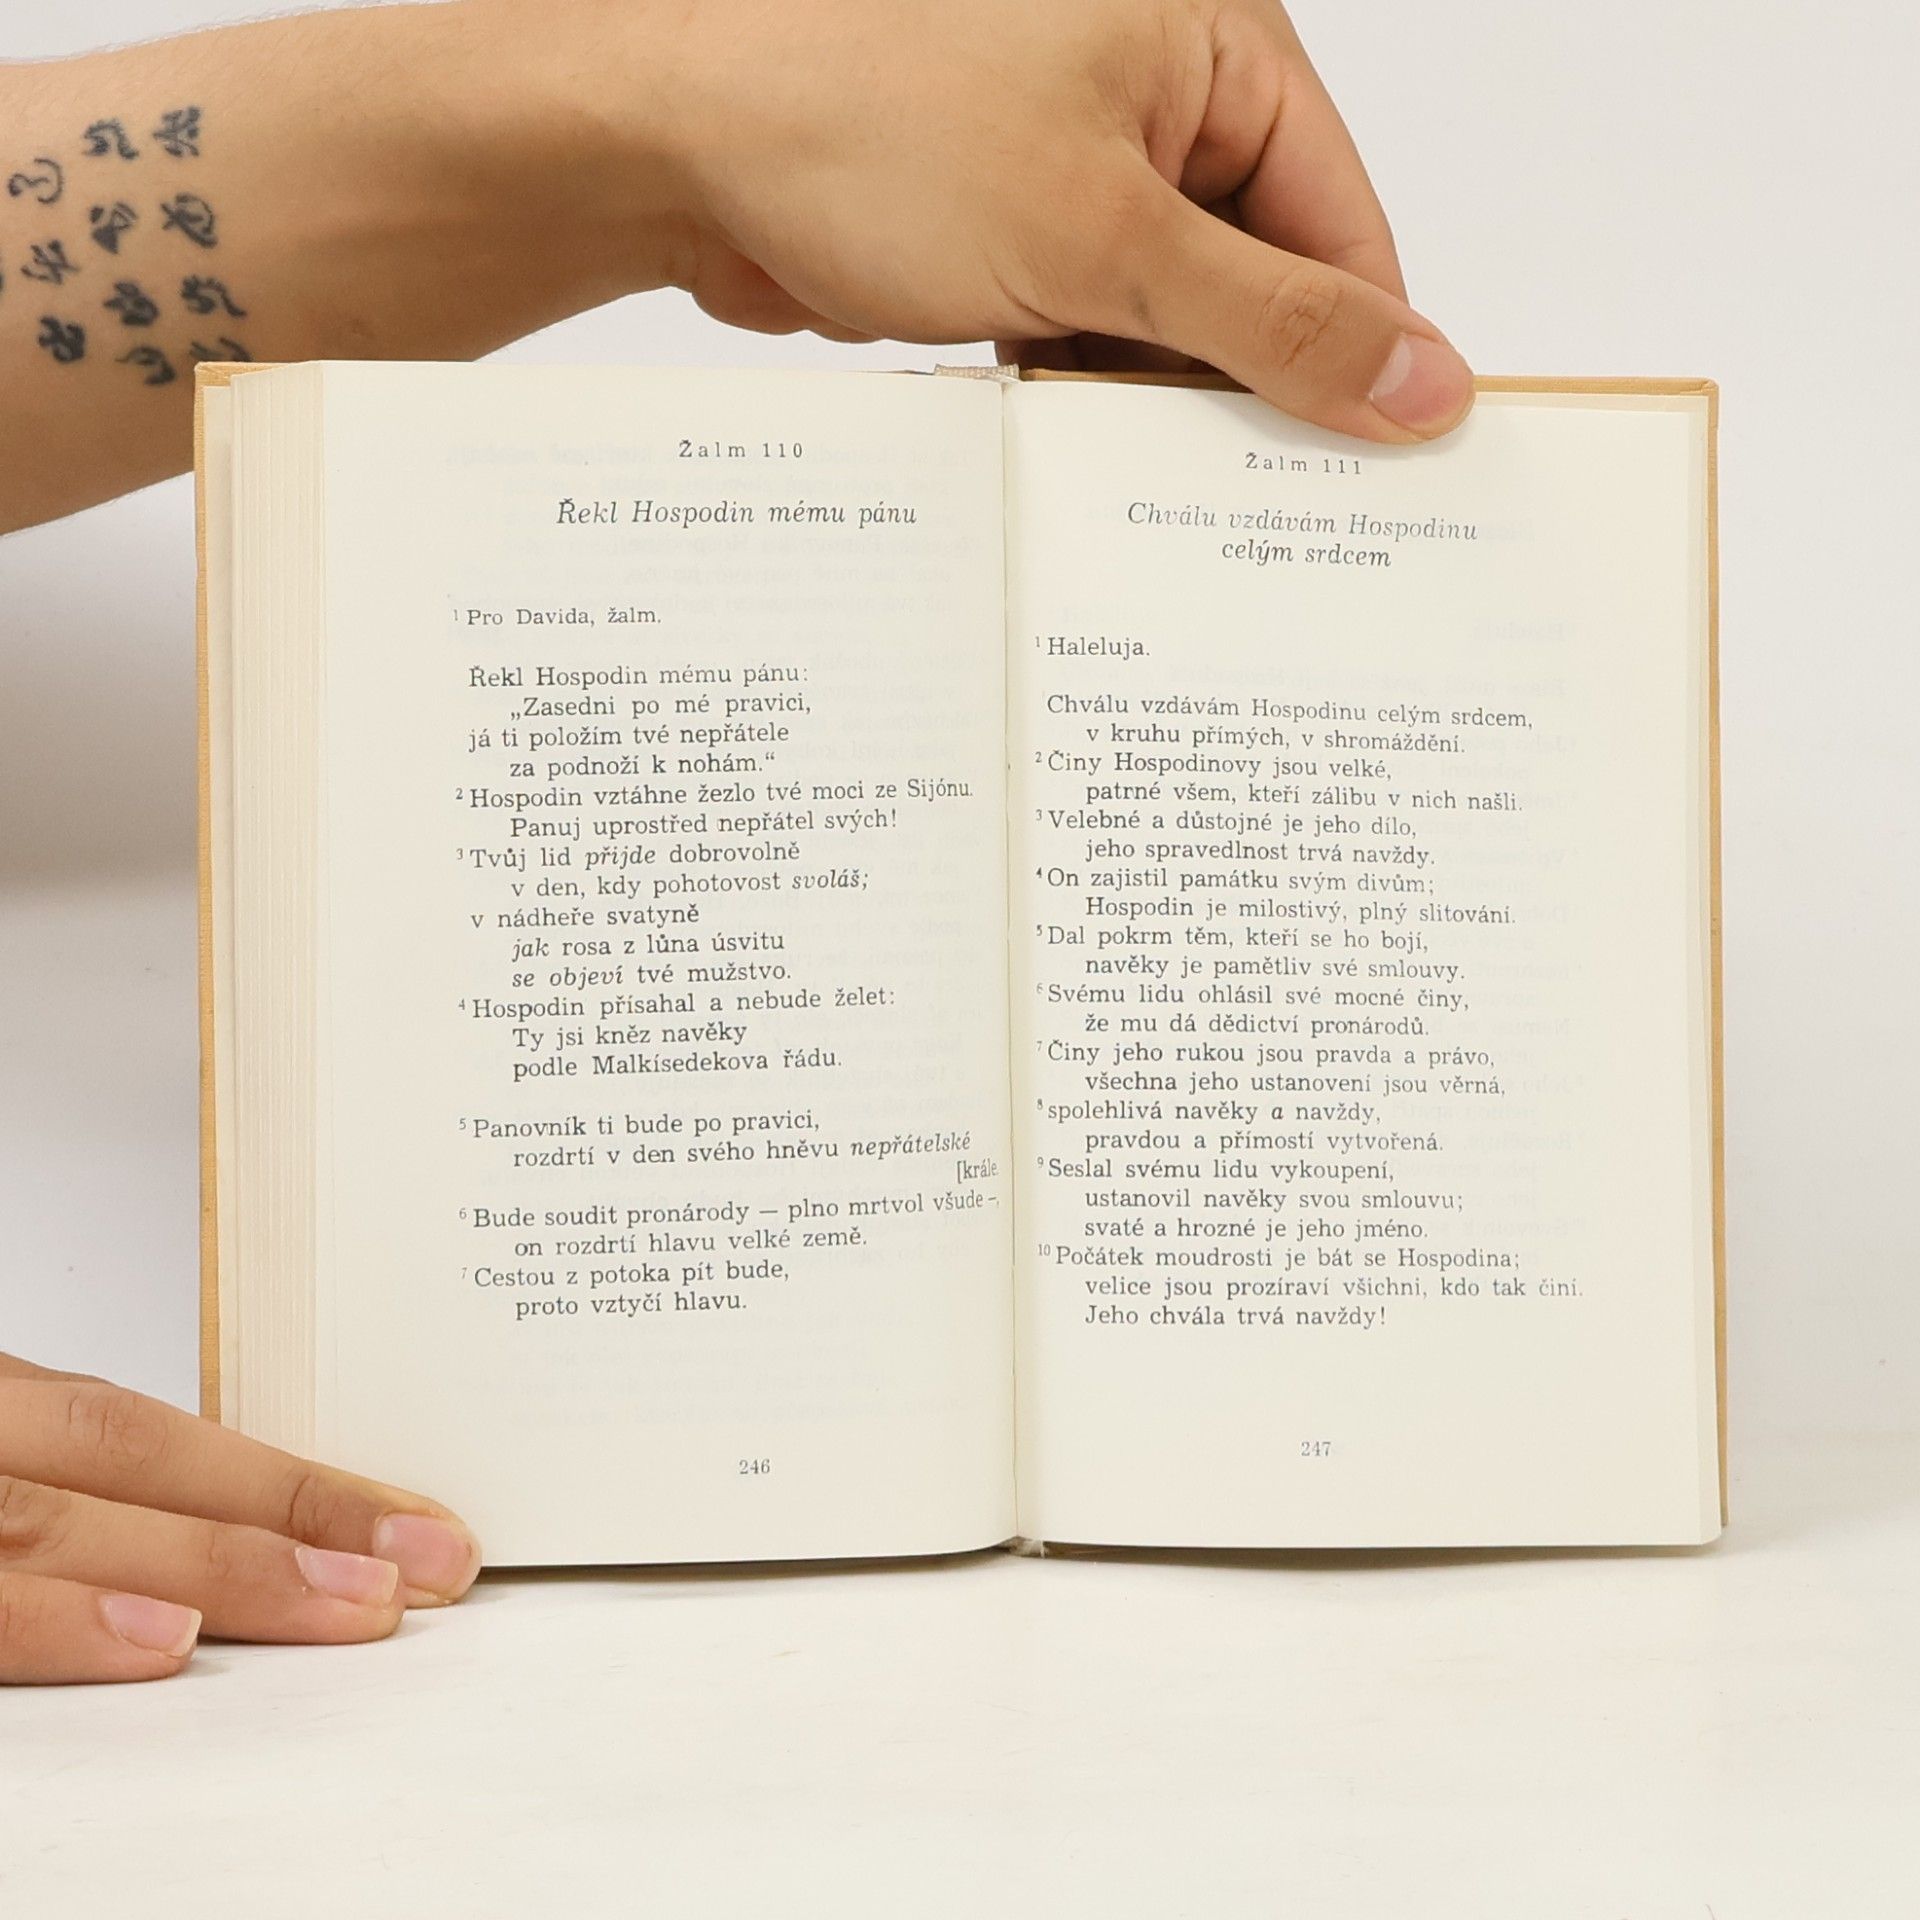 Žalm 110
Řekl Hospodin mému pánu
1 Pro Davida, žalm.
Řekl Hospodin mému pánu:
„Zasedni po mé pravici,
já ti položím tvé nepřátele
za podnoží k nohám.“
2 Hospodin vztáhne žezlo tvé moci ze Sijónu.
Panuj uprostřed nepřátel svých!
3 Tvůj lid přijde dobrovolně
v den, kdy pohotovost svoláš;
v nádheře svatyně
jak rosa z lůna úsvitu
se objeví tvé mužstvo.
4 Hospodin přísahal a nebude želet:
Ty jsi kněz navěky
podle Malkísedekova řádu.
5 Panovník ti bude po pravici,
rozdrtí v den svého hněvu nepřátelské
[krále.
6 Bude soudit pronárody — plno mrtvol všude –,
on rozdrtí hlavu velké země.
7 Cestou z potoka pít bude,
proto vztyčí hlavu.
246
Žalm 111
Chválu vzdávám Hospodinu
celým srdcem
1 Haleluja.
Chválu vzdávám Hospodinu celým srdcem,
v kruhu přímých, v shromáždění.
2 Činy Hospodinovy jsou velké,
patrné všem, kteří zálibu v nich našli.
3 Velebné a důstojné je jeho dílo,
jeho spravedlnost trvá navždy.
4 On zajistil památku svým divům;
Hospodin je milostivý, plný slitování.
5 Dal pokrm těm, kteří se ho bojí,
navěky je pamětliv své smlouvy.
6 Svému lidu ohlásil své mocné činy,
že mu dá dědictví pronárodů.
7 Činy jeho rukou jsou pravda a právo,
všechna jeho ustanovení jsou věrná,
8 spolehlivá navěky a navždy,
pravdou a přímostí vytvořená.
9 Seslal svému lidu vykoupení,
ustanovil navěky svou smlouvu;
svaté a hrozné je jeho jméno.
10 Počátek moudrosti je bát se Hospodina;
velice jsou prozíraví všichni, kdo tak činí.
Jeho chvála trvá navždy!
247